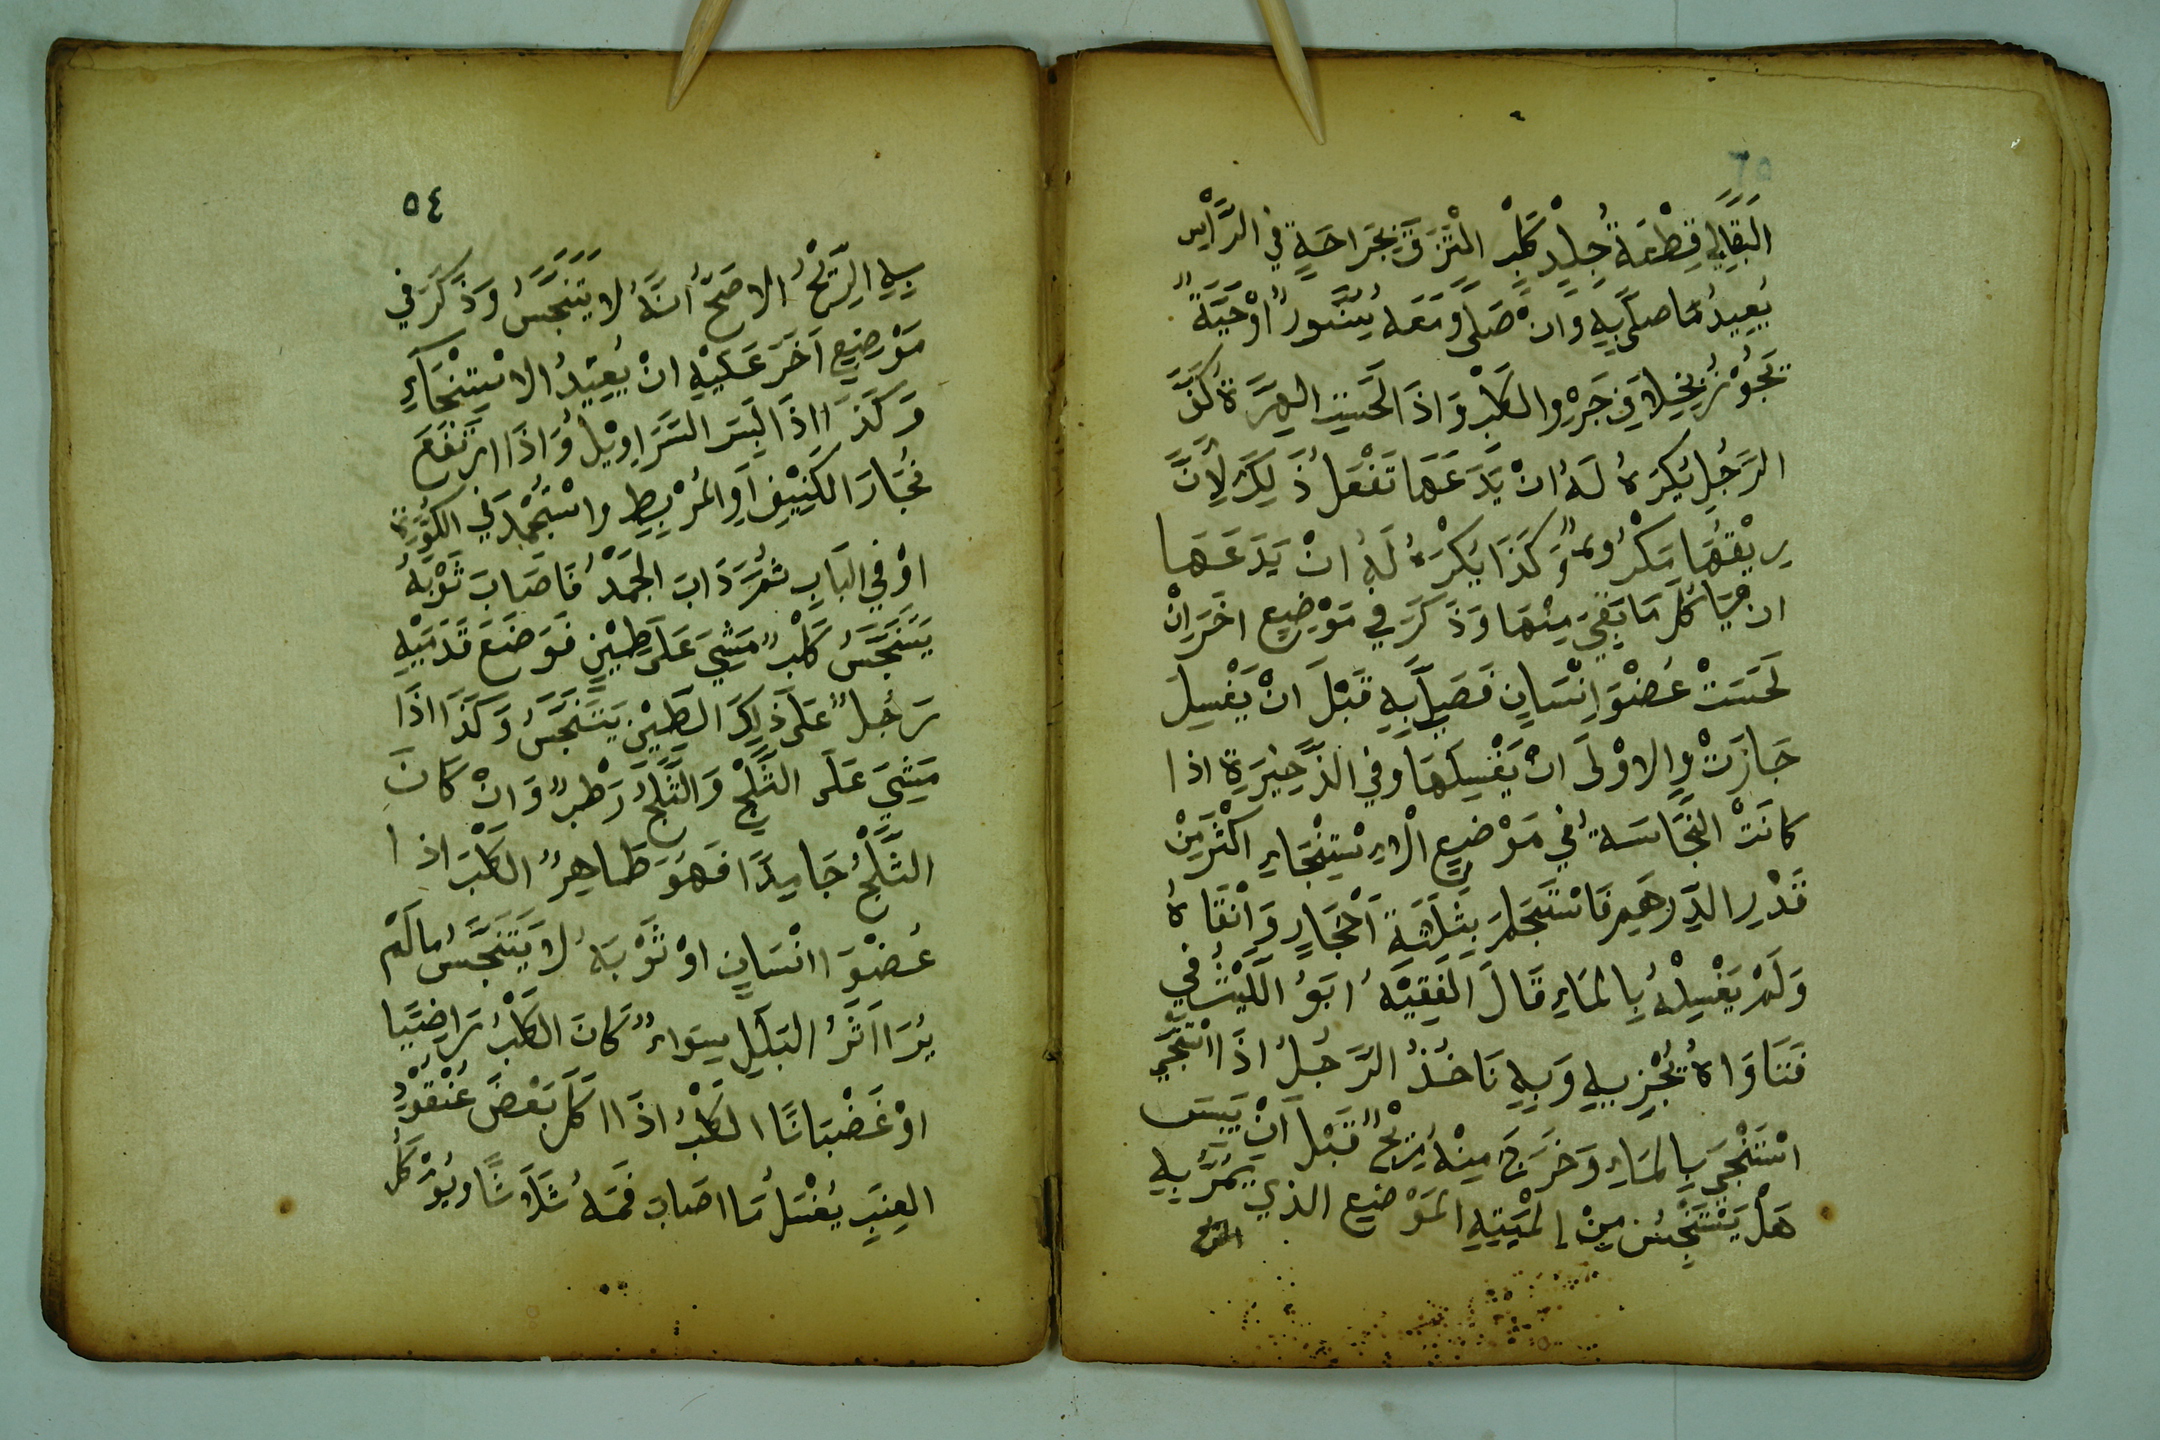 البَقَالِي قِطْعَةُ جِلْدِ كَلْبٍ الْتَزَقَ بِجَرَاحَةٍ فِي الرَّأْسِ
يُعِيدُ مَا صلَّى بِهِ وَانْ صَلَّى وَمَعَهُ سِنَّوْرٌ اَوْ حَيَّةٌ
تَجُوْزُ بِخِلَافِ جَرْوِ الكَلْبِ وَاذَا لَحَسَتِ الهِرَّةُ كَفَّ
الرَّجُلِ يُكْرَهُ لَهُ انْ يَدَعَهَا تَفْعَلُ ذَلِكَ لِأَنَّ
رِيْقَهَا مَكْرُوهٌ وَكَذَا يُكْرَهُ لَهُ انْ يَدَعَهَا
ان يَأْكُلَ مَا بَقِيَ مِنْهَا وَذَكَرَ فِي مَوْضِعٍ اخَرَ اِنْ
لَحَسَتْ عُضْوَ اِنْسَانٍ فَصَلَّى بِهِ قَبْلَ انْ يَغْسِلَ
جَازَتْ وَالاوْلَى انْ يَغْسِلَهَا وَفِي الذَّخِيْرَةِ اذا
كانَتْ النَّجَاسَةُ فِي مَوْضِعِ الْاِسْتِنْجَاءِ اَكْثَرَ مِنْ
قَدْرِ الدِّرْهَمِ فَاسْتَجْمَرَ بِثَلَثَةِ اَحْجَارٍ وَاَنْقَاهُ
وَلَمْ يَغْسِلْهُ بِالْمَاءِ قَالَ الفَقِيْهُ اَبَوُ اللَّيْثُ فِي
فَتَاوَاهُ يُجْزِيهِ وَبِهِ نَاخُذُ الرَّجُلُ اذَا اسْتَنْجَى
اسْتَنْجَى بِالْمَاءِ وَخَرَجَ مِنْهُ رِيْحٌ قَبْلَ اَنْ يَيْبَسَ
هَلْ يَتَنَجَّسُ مِنْ اِلْيَتِهِ الْمَوْضِعِ الذي يَمُرُّ بِهِ
الريح
٥٤
بِهِ الرِّيْحُ الاصَحُّ اَنَّهُ لا يَتَنَجَّسُ وَذَكَرَ فِي
مَوْضِعٍ اَخَرَ عَلَيْهِ انْ يُعِيْدُ الاسْتِنْجَآءِ
وَكَذَا اِذَا لَبِسَ السَّرَاوِيْلَ وَاذَا ارْتَفَعَ
بُخَارَ الكَنِيْفِ اَوِ الْمَرْبِطِ وَاسْتَجْمَدَ فِي الكُوَّةِ
اوْ فِي البَابِ ثُمَّ ذَابَ الجَمْدُ فَاصَابَ ثَوْبَهُ
يَتَنَجَّسُ كَلْبٌ مَشِيَ عَلَى طِيْنٍ فَوَضَعَ قَدَمَيْهِ
رَجُلٌ عَلَى ذَلِكَ الطِّيْنِ يَتَنَجَّسُ وَكَذَا اذَا
مَشِيَ عَلَى الثَّلْجِ وَالثَّلْجُ رَطْبٌ وَانْ كَانَ
الثَّلْجُ جَامِدًا فَهُوَ طَاهِرٌ الكَلْبَ اذا
عُضْوَ اانْسَانٍ اوْ ثَوْبَهُ لا يَتَنَجَّسُ مالَمْ
يُرَا اَثَرُ البَلَلِ سِوَاءٌ كَانَ الكَلْبُ رَاضِيًّا
اوْ غَضْبَانًا الكَلْبُ اذَا اَكَلَ بَعْضَ عُنْقُوْدِ
العِنَبِ يُغْسَلُ مَا اصَابَ فَمَهُ ثَلَاثًا وَيُؤْكَلُ